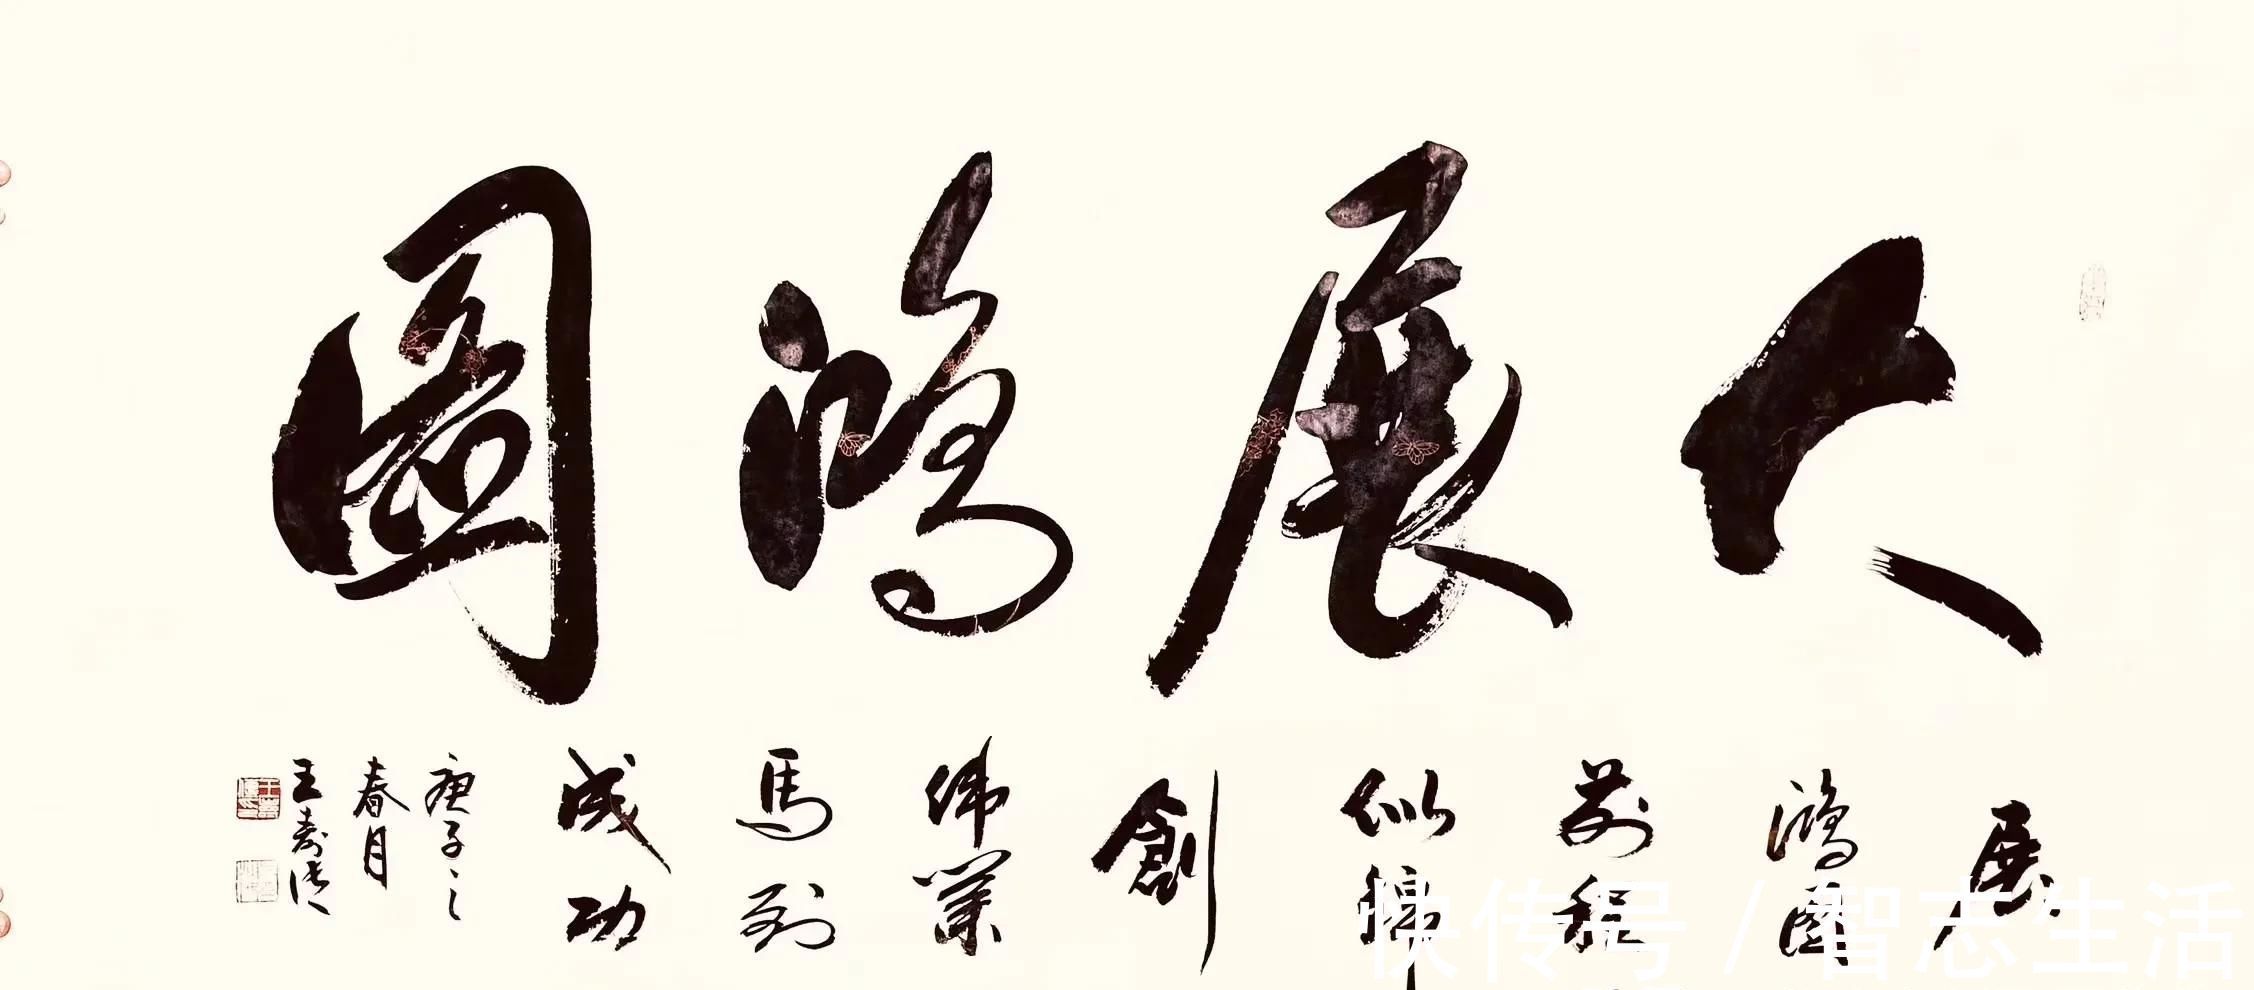 大展鴻圖
展
鴻圖
前程
似錦
創
偉業
馬到
成功
庚子之
春月
王壽
快传号 / 智志生活